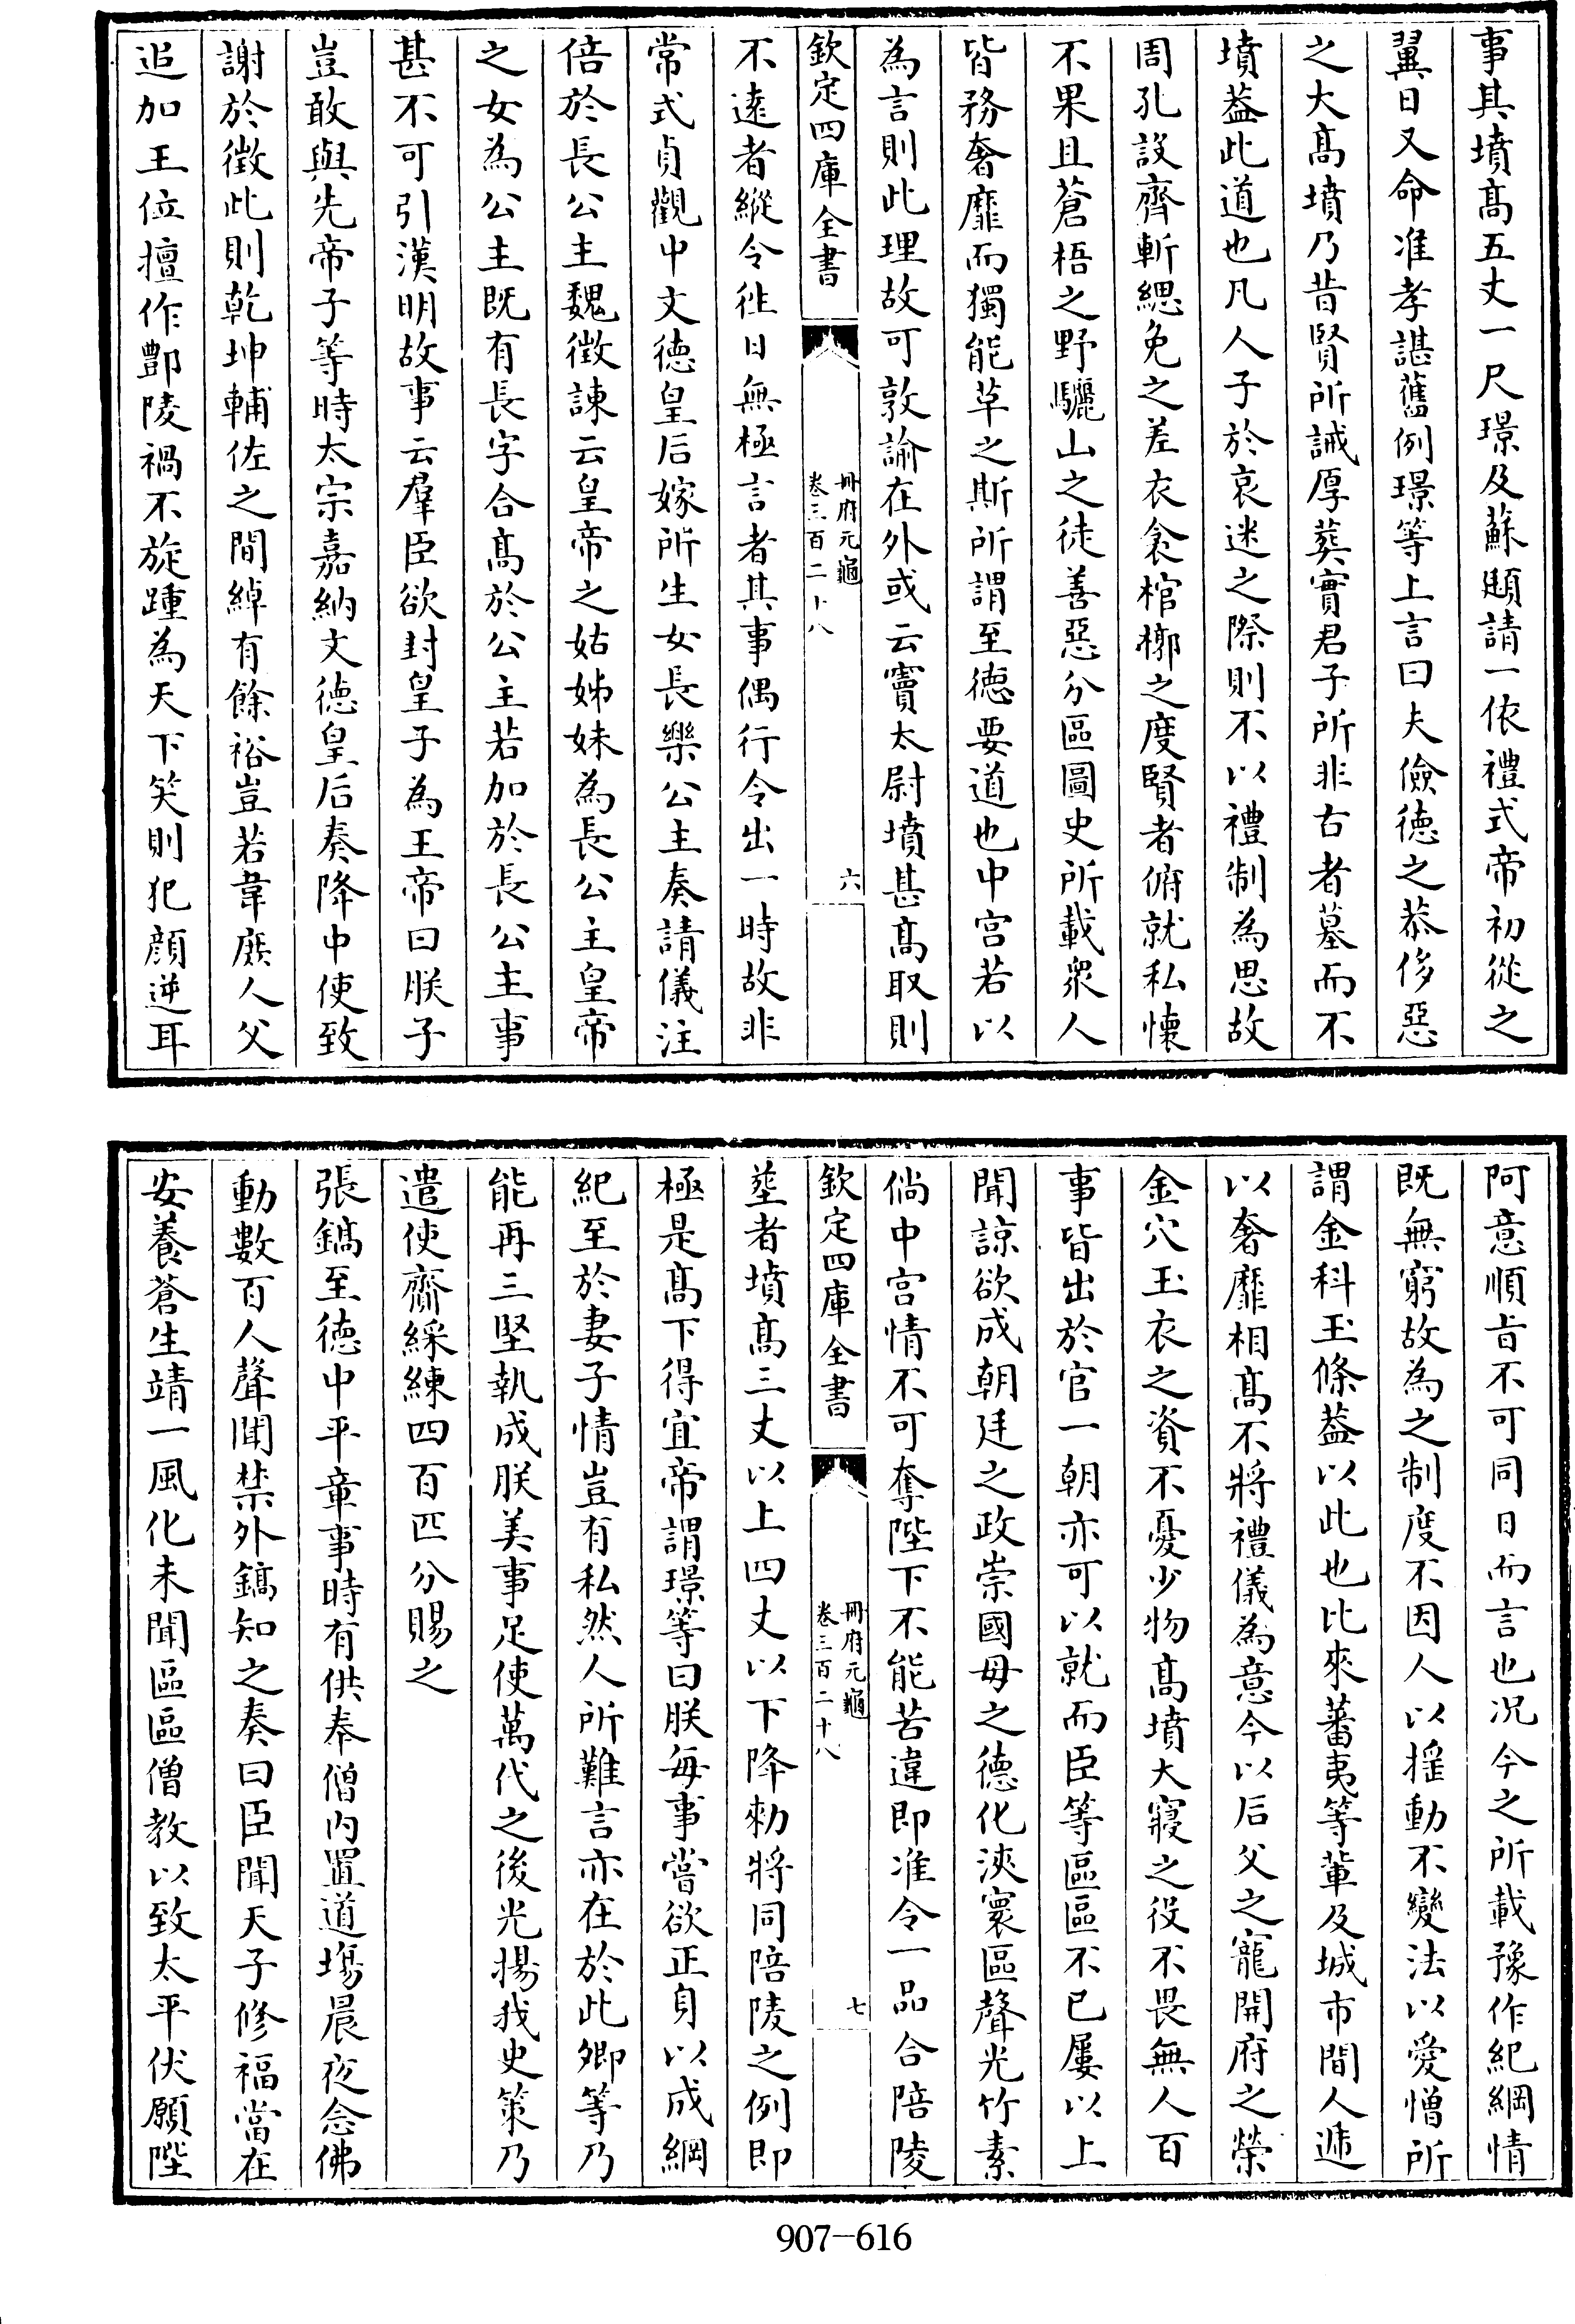 事其墳髙五丈一尺璟及蘇頲請一依禮式帝初從之
翼日又命准孝諶舊例璟等上言曰夫儉徳之恭侈惡
之大髙墳乃昔賢所誡厚葬實君子所非古者墓而不
墳葢此道也凡人子於哀迷之際則不以禮制為思故
周孔設齊斬緦免之差衣衾棺槨之度賢者俯就私懐
不果且蒼梧之野驪山之徒善惡分區圖史所載衆人
皆務奢靡而獨能革之斯所謂至徳要道也中宫若以
為言則此理故可敦諭在外或云竇太尉墳甚髙取則
欽定四庫全書
冊府元龜
卷三百二十八
六
不逺者縱令徃日無極言者其事偶行令出一時故非
常式貞觀中文徳皇后嫁所生女長樂公主奏請儀注
倍於長公主魏徴諫云皇帝之姑姊妹為長公主皇帝
之女為公主既有長字合髙於公主若加於長公主事
甚不可引漢明故事云羣臣欲封皇子為王帝曰朕子
豈敢與先帝子等時太宗嘉納文徳皇后奏降中使致
謝於徴此則乾坤輔佐之間綽有餘裕豈若韋庶人父
追加王位擅作酆陵禍不旋踵為天下笑則犯顔逆耳
阿意順旨不可同日而言也况今之所載豫作紀綱情
既無窮故為之制度不因人以揺動不變法以愛憎所
謂金科玉條葢以此也比來蕃夷等輩及城市間人遞
以奢靡相髙不將禮儀為意今以后父之寵開府之榮
金穴玉衣之資不憂少物髙墳大寢之役不畏無人百
事皆出於官一朝亦可以就而臣等區區不已屢以上
聞諒欲成朝廷之政崇國母之徳化浹寰區聲光竹素
倘中宫情不可奪陛下不能苦違即准令一品合陪陵
欽定四庫全書
冊府元龜
卷三百二十八
七
塟者墳髙三丈以上四丈以下降勑將同陪陵之例即
極是髙下得宜帝謂璟等曰朕每事嘗欲正身以成綱
紀至於妻子情豈有私然人所難言亦在於此卿等乃
能再三堅執成朕美事足使萬代之後光揚我史策乃
遣使齎綵練四百匹分賜之
張鎬至徳中平章事時有供奉僧内置道塲晨夜念佛
動數百人聲聞禁外鎬知之奏曰臣聞天子修福當在
安養蒼生靖一風化未聞區區僧教以致太平伏願陛
907-616